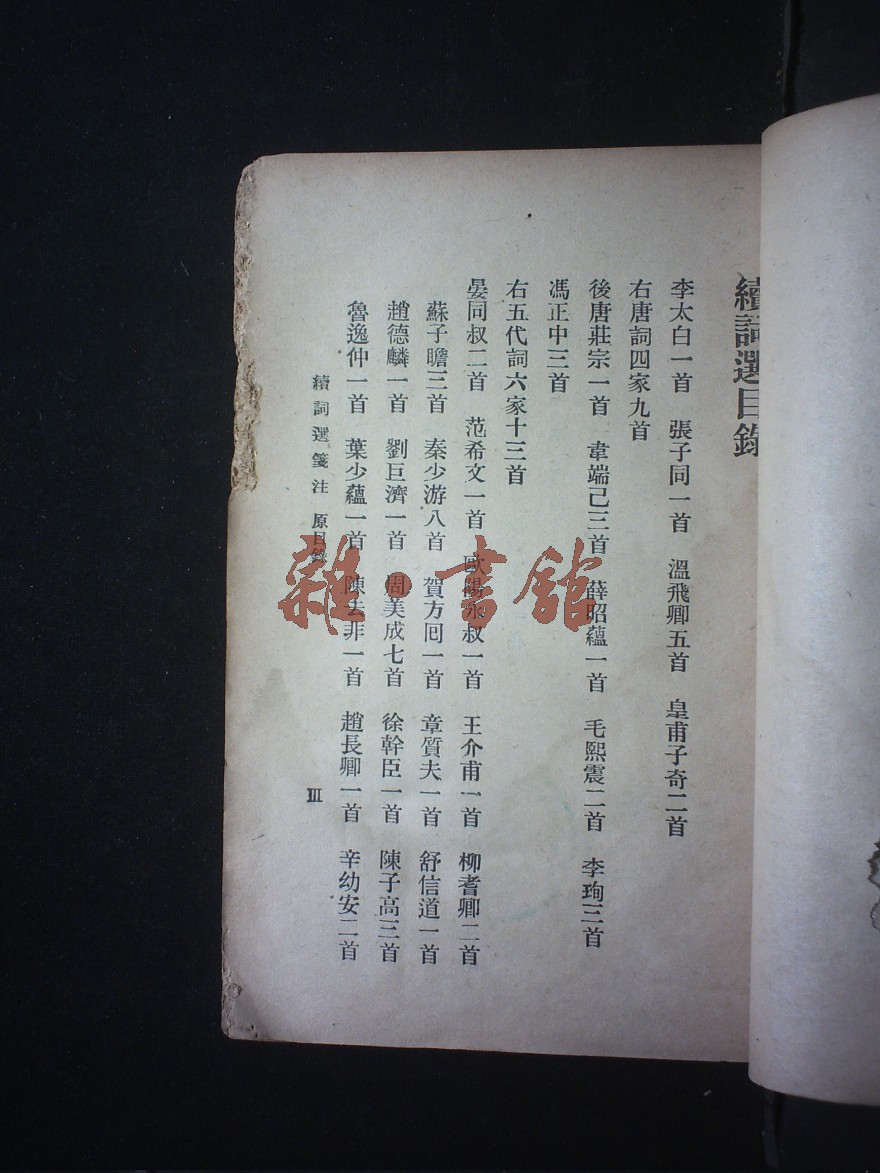 續詞選目錄
李太白一首　張子同一首　溫飛卿五首　皇甫子奇二首
右唐詞四家九首
後唐莊宗一首　韋端己三首　薛昭蘊一首　毛熙震二首　李珣三首
馮正中三首
右五代詞六家十三首
晏同叔二首　范希文一首　歐陽永叔一首　王介甫一首　柳耆卿二首
蘇子瞻三首　秦少游八首　賀方回一首　章質夫一首　舒信道一首
趙德麟一首　劉巨濟一首　周美成七首　徐幹臣一首　陳子高三首
魯逸仲一首　葉少蘊一首　陳去非一首　趙長卿一首　辛幼安二首
續詞選箋注　原目錄
III
雜·書館